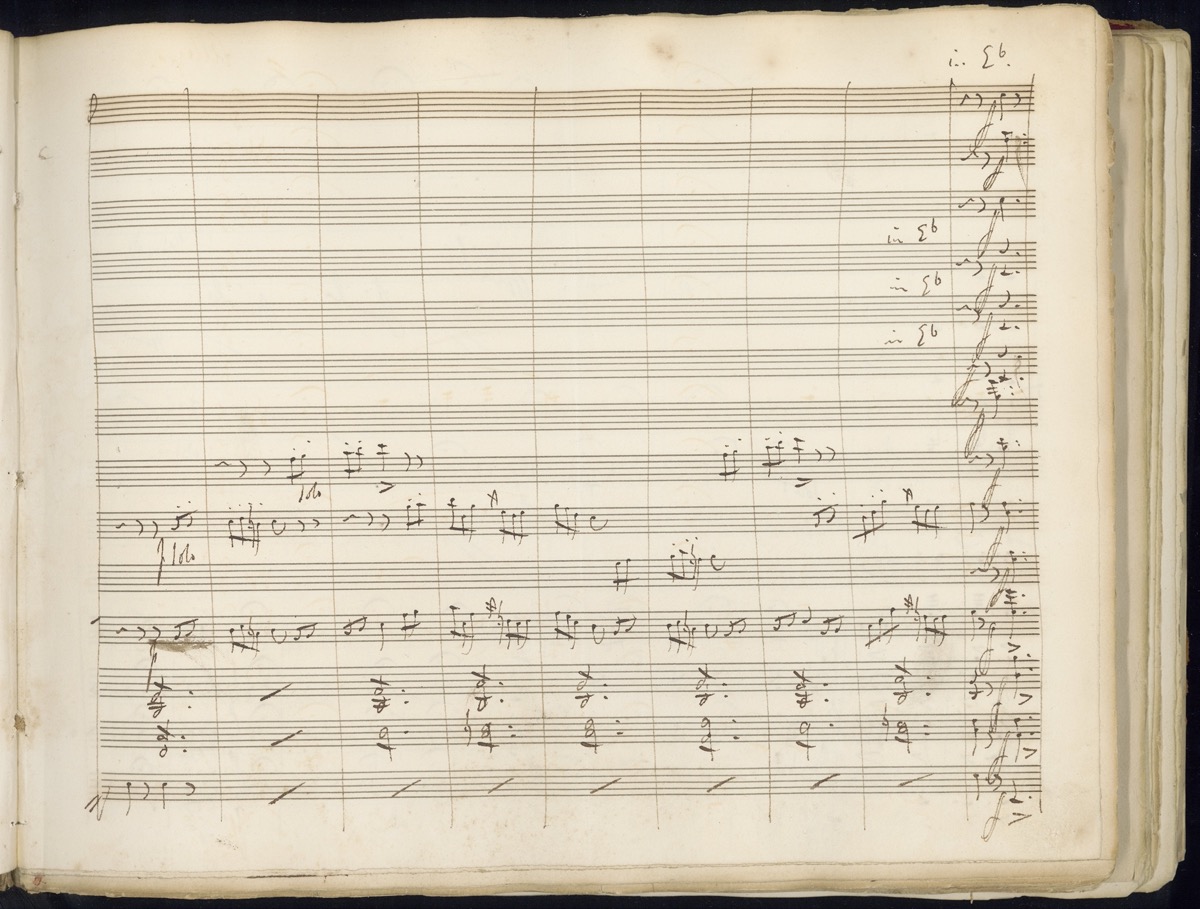 in Eb.
in Eb
in Eb
in Eb
Solo
f Solo